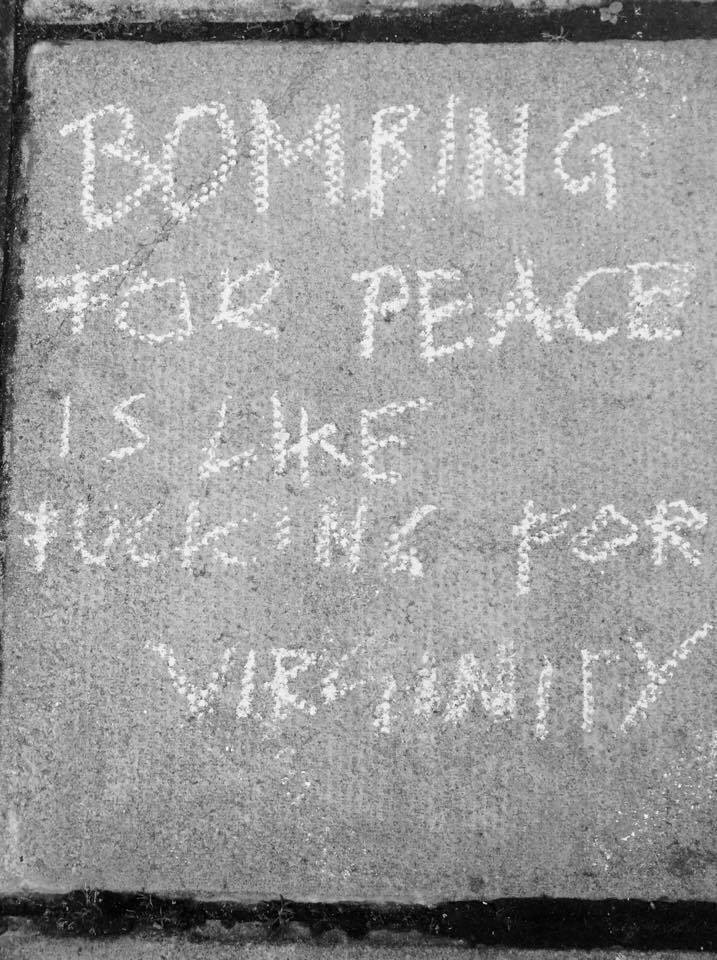 BOMBING
FOR PEACE
IS LIKE
FUCKING FOR
VIRGINITY